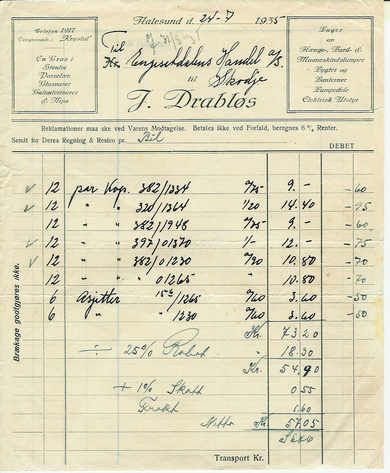 Telefon 1017
Telegramadr. "Krystal"
En Gros i
Stentøi
Porselæn
Glasvarer
Galanterivarer
& Nips
Aalesund d. 24-7 1935
Til
Hr. Engsetdalens Handel A/S.
til Skodje
J. Drabløs
Lager
av
Hænge-, Bord- &
Lygter og
Lanterner
Lampedele
Elektrisk Utstyr
Reklamationer maa ske ved Varens Modtagelse. Betales ikke ved Forfald, beregnes 6 % Renter.
Sendt for Deres Regning & Resico pr. Bil
DEBET
12 par Kop. 382/1334 a/75 9.- -60
12 " " 320/1364 1/20 14.40 -95
12 " " 382/1948 a/75 9.- -60
12 " " 397/01370 1/- 12.- -75
12 " " 382/01230 a/90 10.80 -70
12 " " " 01265 " 10.80 -70
6 Asjetter /1265 a/60 3.60 -50
6 " " /1230 a/60 3.60 -50
Kr. 73.20
÷ 25% Rabat " 18.30
Kr. 54.90
+ 1% Skatt 0.55
Frakt 1.60
Netto Kr. 57.05
Brækage godtgjøres ikke.
Transport Kr.